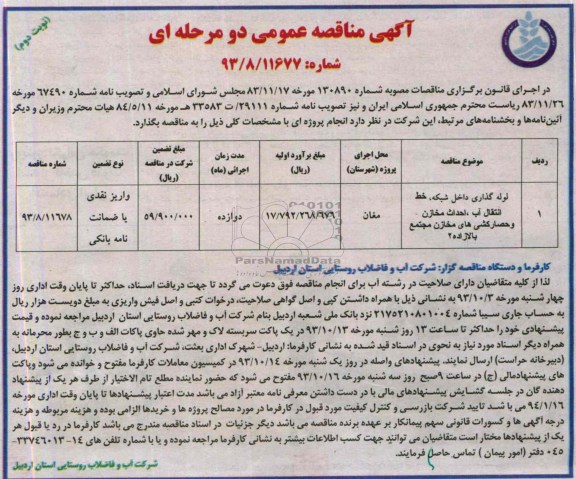 (نوبت دوم)
آگهی مناقصه عمومی دو مرحله ای
شماره: ۹۳/۸/۱۱۶۷۷
در اجرای قانون برگزاری مناقصات مصوبه شماره ۱۳۰۸۹۰ مورخه ۸۳/۱۱/۱۷ مجلس شورای اسلامی و تصویب نامه شماره ۶۷۴۹۰ مورخه
۸۳/۱۱/۲۶ ریاست محترم جمهوری اسلامی ایران و نیز تصویب نامه شماره ۲۹۱۱۱/ ت ۳۳۵۸۳ هـ مورخه ۸۴/۵/۱۱ هیات محترم وزیران و دیگر
آئین‌نامه‌ها و بخشنامه‌های مرتبط، این شرکت در نظر دارد انجام پروژه ای با مشخصات کلی ذیل را به مناقصه بگذارد.
ردیف موضوع مناقصه محل اجرای پروژه (شهرستان) مبلغ برآورد اولیه (ریال) مدت زمان اجرائی (ماه) مبلغ تضمین شرکت در مناقصه (ریال) نوع تضمین شماره مناقصه
۱ لوله گذاری داخل شبکه، خط انتقال آب ،احداث مخازن وحصارکشی های مخازن مجتمع بالازاده۲ مغان ۱۷/۷۹۲/۲۶۸/۶۷۶ دوازده ۵۹/۹۰۰/۰۰۰ واریز نقدی یا ضمانت نامه بانکی ۹۳/۸/۱۱۶۷۸
ParsNamadData
کارفرما و دستگاه مناقصه گزار: شرکت آب و فاضلاب روستایی استان اردبیل
لذا از کلیه متقاضیان دارای صلاحیت در رشته آب برای انجام مناقصه فوق دعوت می گردد تا جهت دریافت اسناد، حداکثر تا پایان وقت اداری روز
چهار شنبه مورخه ۹۳/۱۰/۳ به نشانی ذیل با همراه داشتن کپی و اصل گواهی صلاحیت، درخواست کتبی و اصل فیش واریزی به مبلغ دویست هزار ریال
به حساب جاری سیبا شماره ۲۱۷۵۲۱۰۸۰۱۰۰۴ نزد بانک ملی شعبه اردبیل بنام شرکت آب و فاضلاب روستایی استان اردبیل مراجعه نموده و قیمت
پیشنهادی خود را حداکثر تا ساعت ۱۳ روز شنبه مورخه ۹۳/۱۰/۱۳ در یک پاکت سربسته لاک و مهر شده حاوی پاکات الف و ب و ج بطور محرمانه به
همراه دیگر اسناد مورد نیاز به نحوی در اسناد قید شده به نشانی کارفرما: اردبیل- شهرک اداری بعثت، شرکت آب و فاضلاب روستایی استان اردبیل،
(دبیرخانه حراست) ارسال نمایند. پیشنهادهای واصله در روز یک شنبه مورخه ۹۳/۱۰/۱۴ در کمیسیون معاملات کارفرما مفتوح و خوانده می شود وپاکت
های پیشنهادمالی (ج) در ساعت ۹صبح روز سه شنبه مورخه ۹۳/۱۰/۱۶ مفتوح می شود که حضور نماینده مطلع تام الاختیار از طرف هر یک از پیشنهاد
دهنده گان در جلسه گشایش پیشنهادهای مالی با در دست داشتن معرفی نامه معتبر آزاد می باشد مدت اعتبار پیشنهادها تا پایان وقت اداری مورخه
۹۴/۱/۱۶ می با شد تایید شرکت بازرسی و کنترل کیفیت مورد قبول در کارفرما در مورد مصالح پروژه ها و خریدها الزامی بوده و هزینه مربوطه و هزینه
درجه آگهی ها و کسورات قانونی سهم پیمانکار بر عهده برنده مناقصه می باشد دیگر جزئیات در اسناد مناقصه مندرج می باشد کارفرما در رد یا قبول هر
یک از پیشنهادها مختار است متقاضیان می توانند جهت کسب اطلاعات بیشتر به نشانی کارفرما مراجعه نموده و یا با شماره تلفن های ۱۴-۳۳۷۴۶۰۱۳-
۰۴۵ دفتر (امور پیمان ) تماس حاصل فرمایند.
شرکت آب و فاضلاب روستایی استان اردبیل